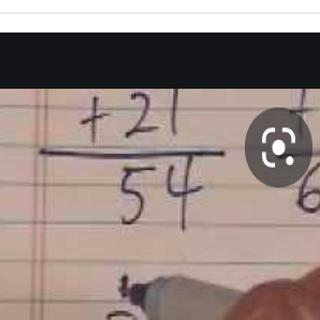 +21
54